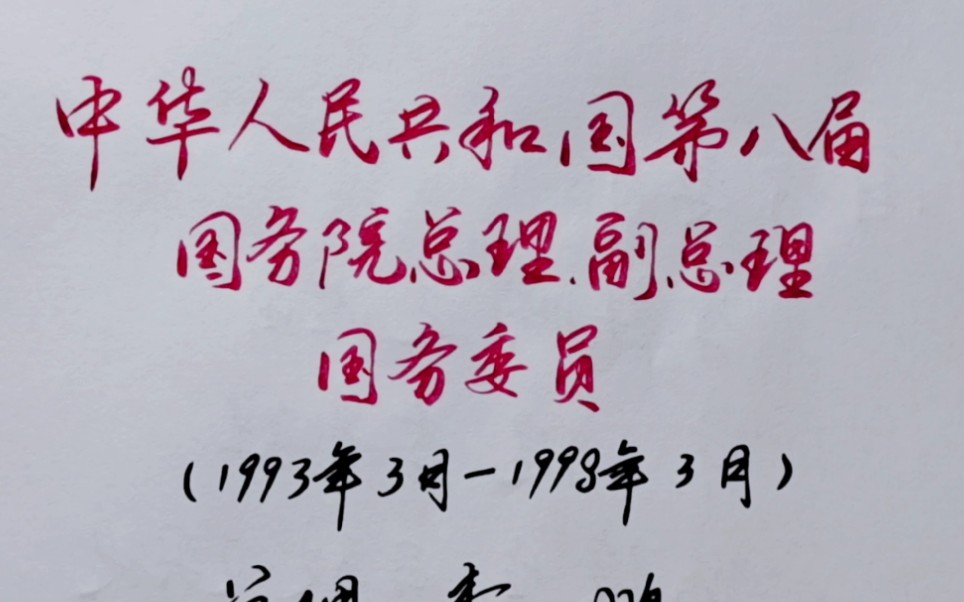 中华人民共和国第八届
国务院总理、副总理
国务委员
(1993年3月-1998年3月)